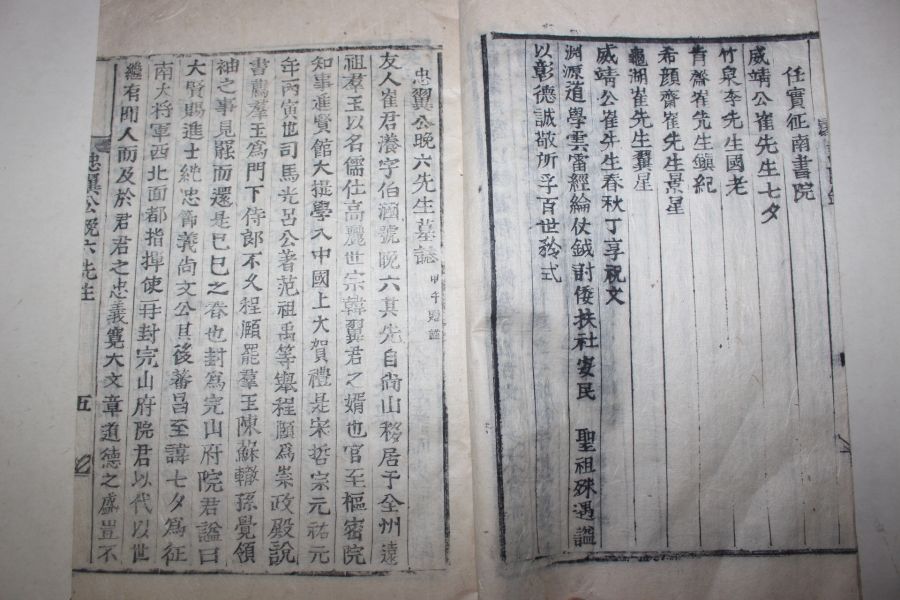 任實征南書院
威靖公崔先生七夕
竹泉李先生國老
青齋崔先生鎭紀
希顔齋崔先生景星
龜湖崔先生翼星
威靖公崔先生春秋丁享祝文
淵源道學雲雷經綸仗鉞討倭扶社安民 聖祖殊遇謚
以彰德誠敬所孚百世矜式
忠翼公晩六先生墓誌
友人崔君瀁字伯涵號晩六其先自尙山移居于全州遠
祖羣玉以名儒仕高麗世宗韓翼君之婿也官至樞密院
知事進賢館大提學入中國上大賀禮是宋哲宗元祐元
年丙寅也司馬光呂公著范祖禹等擧程頤爲崇政殿說
書薦羣玉爲門下侍郎不久程頤罷羣玉陳蘇轍孫覺領
袖之事見罷而還是己巳之春也封爲完山府院君謚曰
大賢賜進士純忠節義尙文公其後蕃昌至諱七夕爲征
南大將軍西北面都指揮使再封完山府院君以代以世
繼有聞人而及於君君之忠義寬大文章道德之盛豈不
忠翼公晩六先生 五